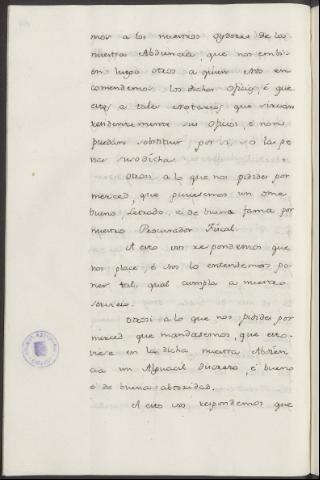 mos a los nuestros oydores de la
nuestra Abdiencia, que nos embi-
en luego otros a quien Nos en
comendemos los dichos oficios, é que
estos a tales Notarios que sirvan
residentemente sus oficios, é non
puedan sobstituir por sí, so la pe
na susodicha.
Otrosi a lo que nos pidides por
merced, que pusiesemos un ome
bueno, Letrado, é de buena fama por
nuestro Procurador Fiscal.
A esto vos respondemos que
nos place, é Nos lo entendemos po-
ner tal, qual cumpla a nuestro
servicio.
Otrosi a lo que nos pidides por
merced que mandasemos, que esto-
viese en la dicha nuestra Abdien
cia un Alguacil discreto, é bueno
é de buena abtoridad.
A esto vos respondemos que